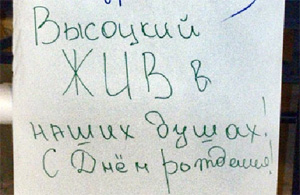 Высоцкий
ЖИВ в
наших душах!
С Днём рождения!